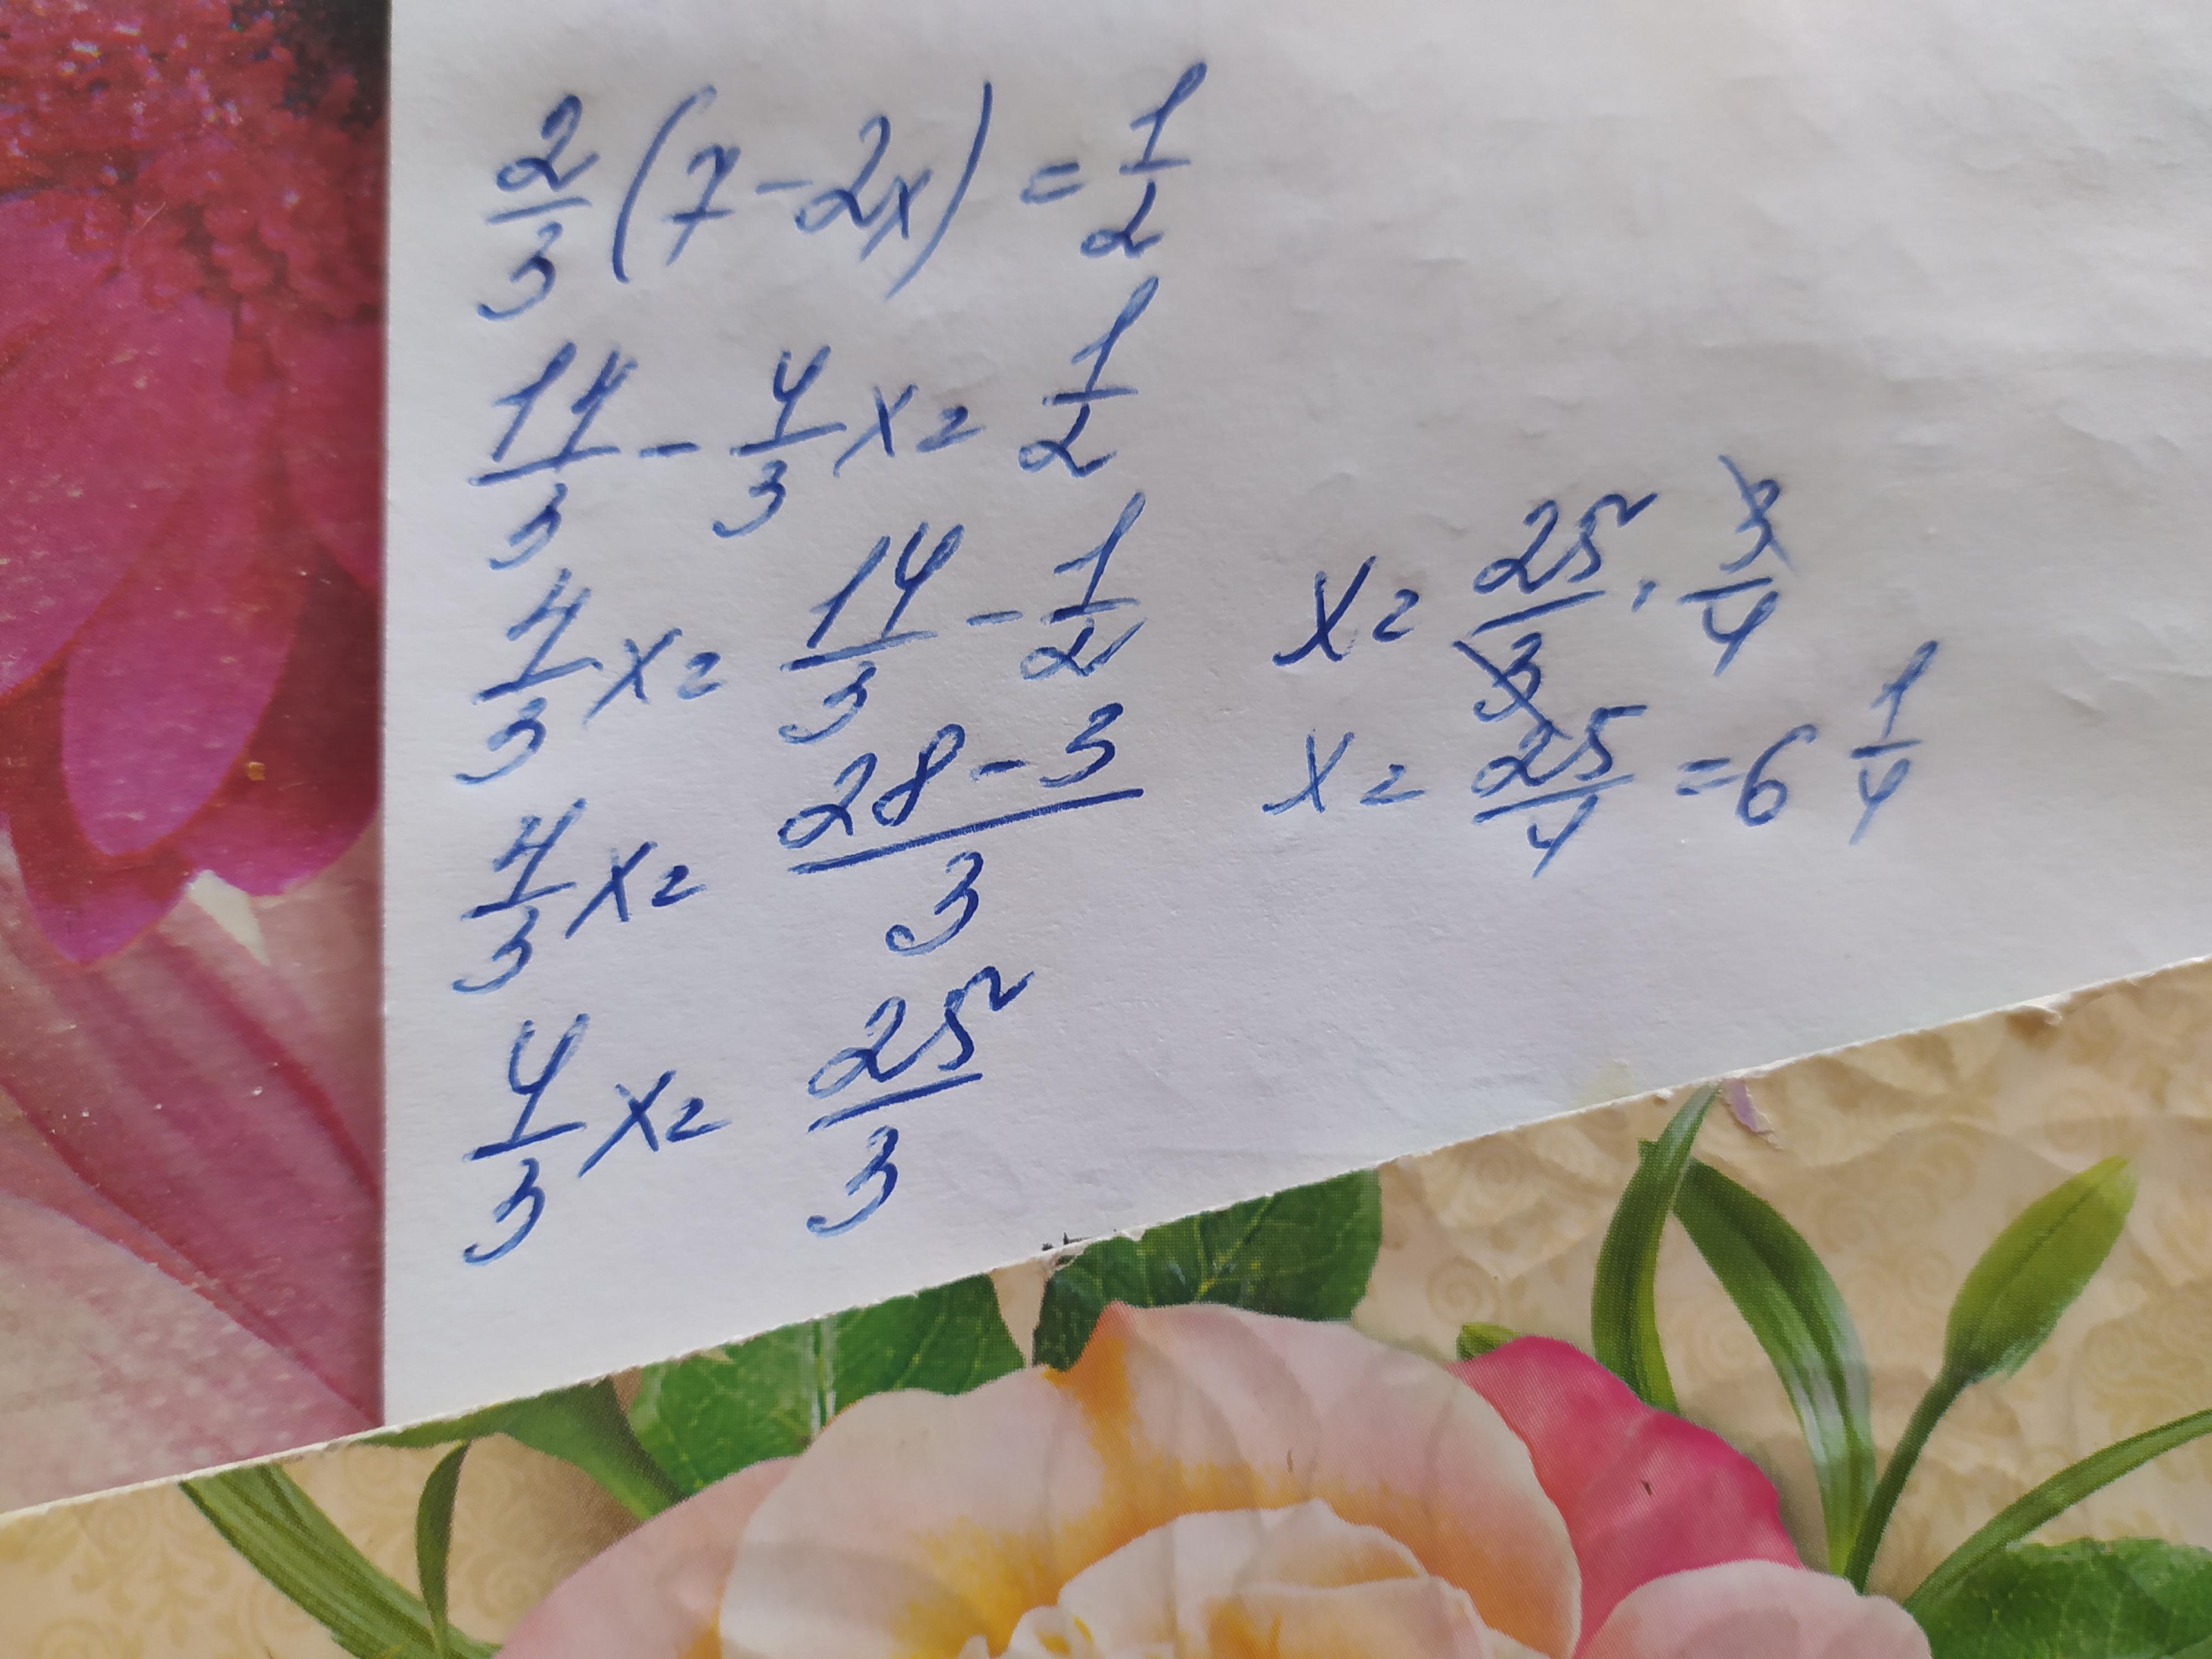 2/3 (7 - 2x) = 1/2
14/3 - 4/3 x = 1/2
4/3 x = 14/3 - 1/2
4/3 x = (28 - 3)/3
4/3 x = 25/3
x = 25/3 · 3/4
x = 25/4 = 6 1/4